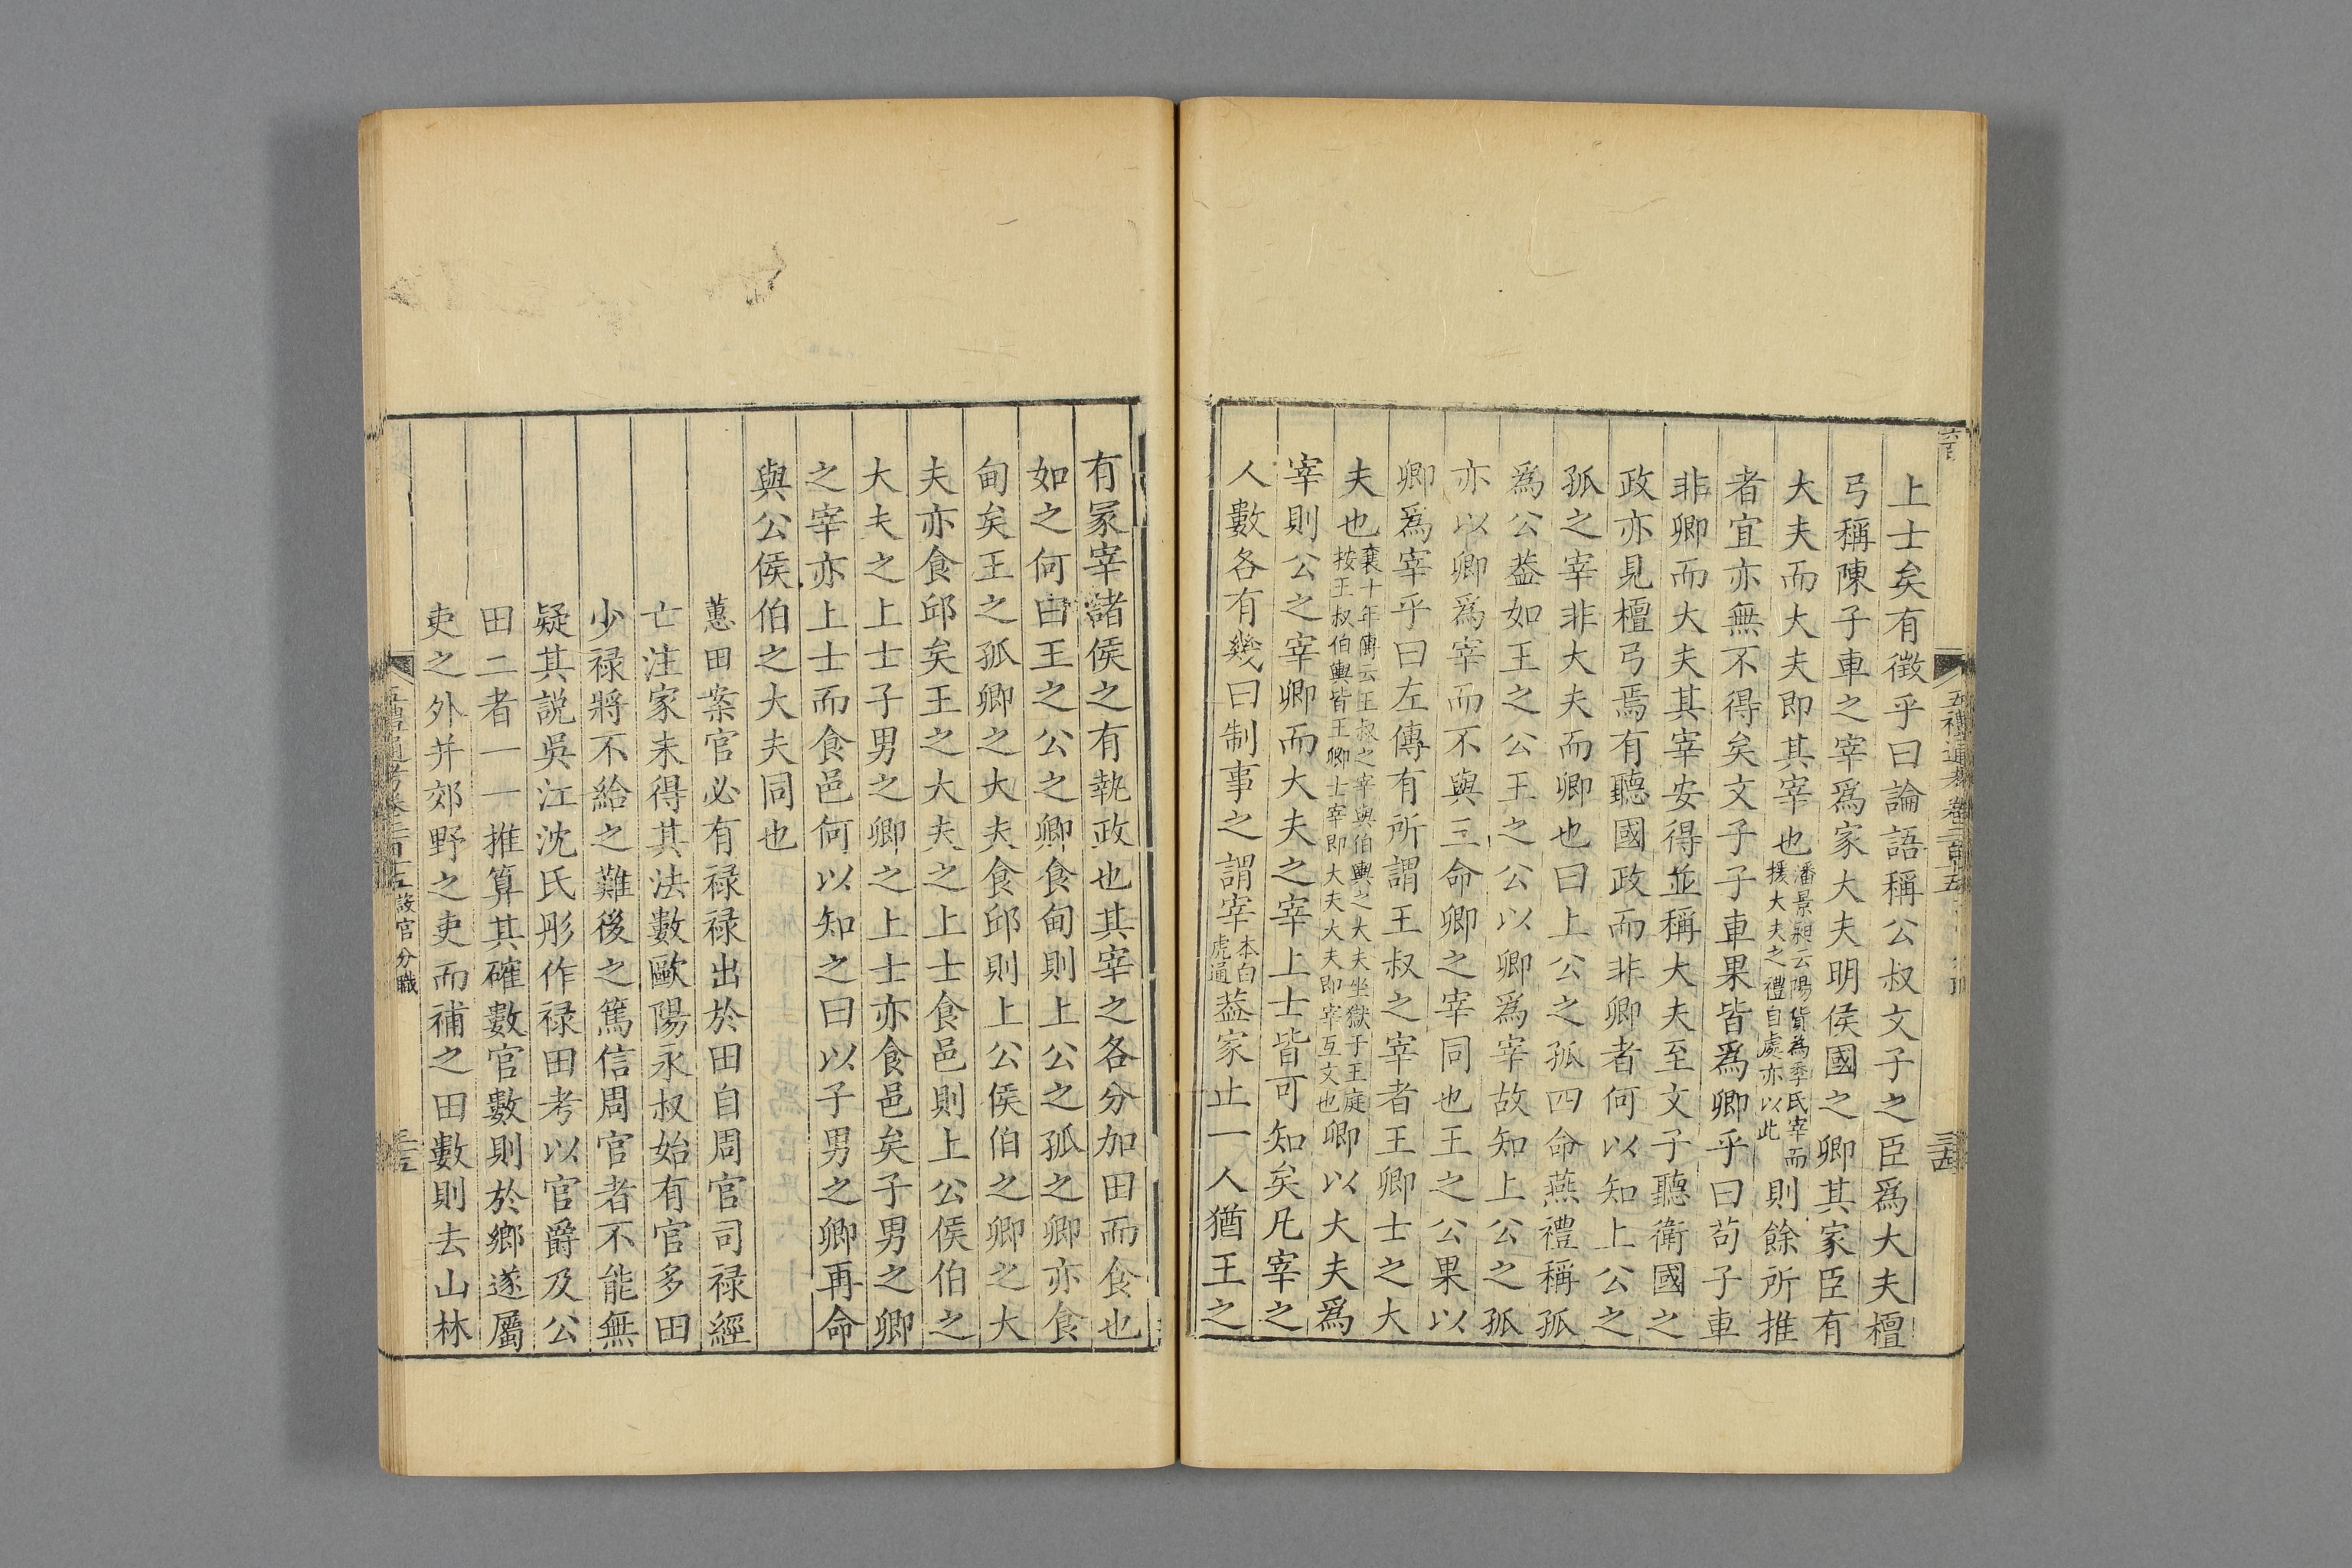 上士矣有徵乎曰論語稱公叔文子之臣爲大夫檀
弓稱陳子車之宰爲家大夫明侯國之卿其家臣有
大夫而大夫即其宰也潘景昶云陽貨為季氏宰而援大夫之禮自處亦以此則餘所推
者宜亦無不得矣文子子車果皆爲卿乎曰苟子車
非卿而大夫其宰安得並稱大夫至文子聽衛國之
政亦見檀弓焉有聽國政而非卿者何以知上公之
孤之宰非大夫而卿也曰上公之孤四命燕禮稱孤
爲公葢如王之公王之公以卿爲宰故知上公之孤
亦以卿爲宰而不與三命卿之宰同也王之公果以
卿爲宰乎曰左傳有所謂王叔之宰者王卿士之大
夫也襄十年傳云王叔之宰與伯輿之大夫坐獄于王庭按王叔伯輿皆王卿士宰即大夫大夫即宰互文也卿以大夫爲
宰則公之宰卿而大夫之宰上士皆可知矣凡宰之
人數各有幾曰制事之謂宰本白虎通葢家止一人猶王之
五禮通考卷二百十五
三十四
有冢宰諸侯之有執政也其宰之各分加田而食也
如之何曰王之公之卿食甸則上公之孤之卿亦食
甸矣王之孤卿之大夫食邱則上公侯伯之卿之大
夫亦食邱矣王之大夫之上士食邑則上公侯伯之
大夫之上士子男之卿之上士亦食邑矣子男之卿
之宰亦上士而食邑何以知之曰以子男之卿再命
與公侯伯之大夫同也
蕙田案官必有禄禄出於田自周官司禄經
亡注家未得其法數歐陽永叔始有官多田
少禄將不給之難後之篤信周官者不能無
疑其說吳江沈氏彤作禄田考以官爵及公
田二者一一推算其確數官數則於鄉遂屬
吏之外并郊野之吏而補之田數則去山林
五禮通考卷二百十五 設官分職
三十五